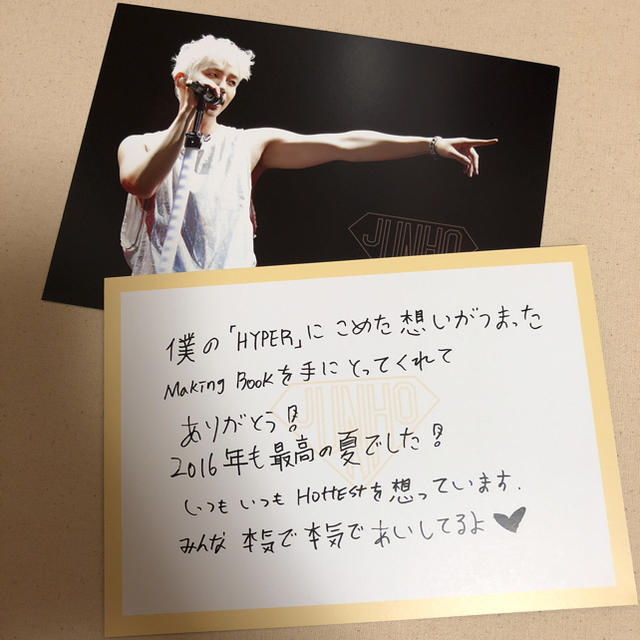 JUNHO
僕の「HYPER」にこめた想いがつまった
Making Bookを手にとってくれて
ありがとう!
2016年も最高の夏でした!
いつもいつもHottestを想っています.
みんな 本気で本気であいしてるよ♥
JUNHO